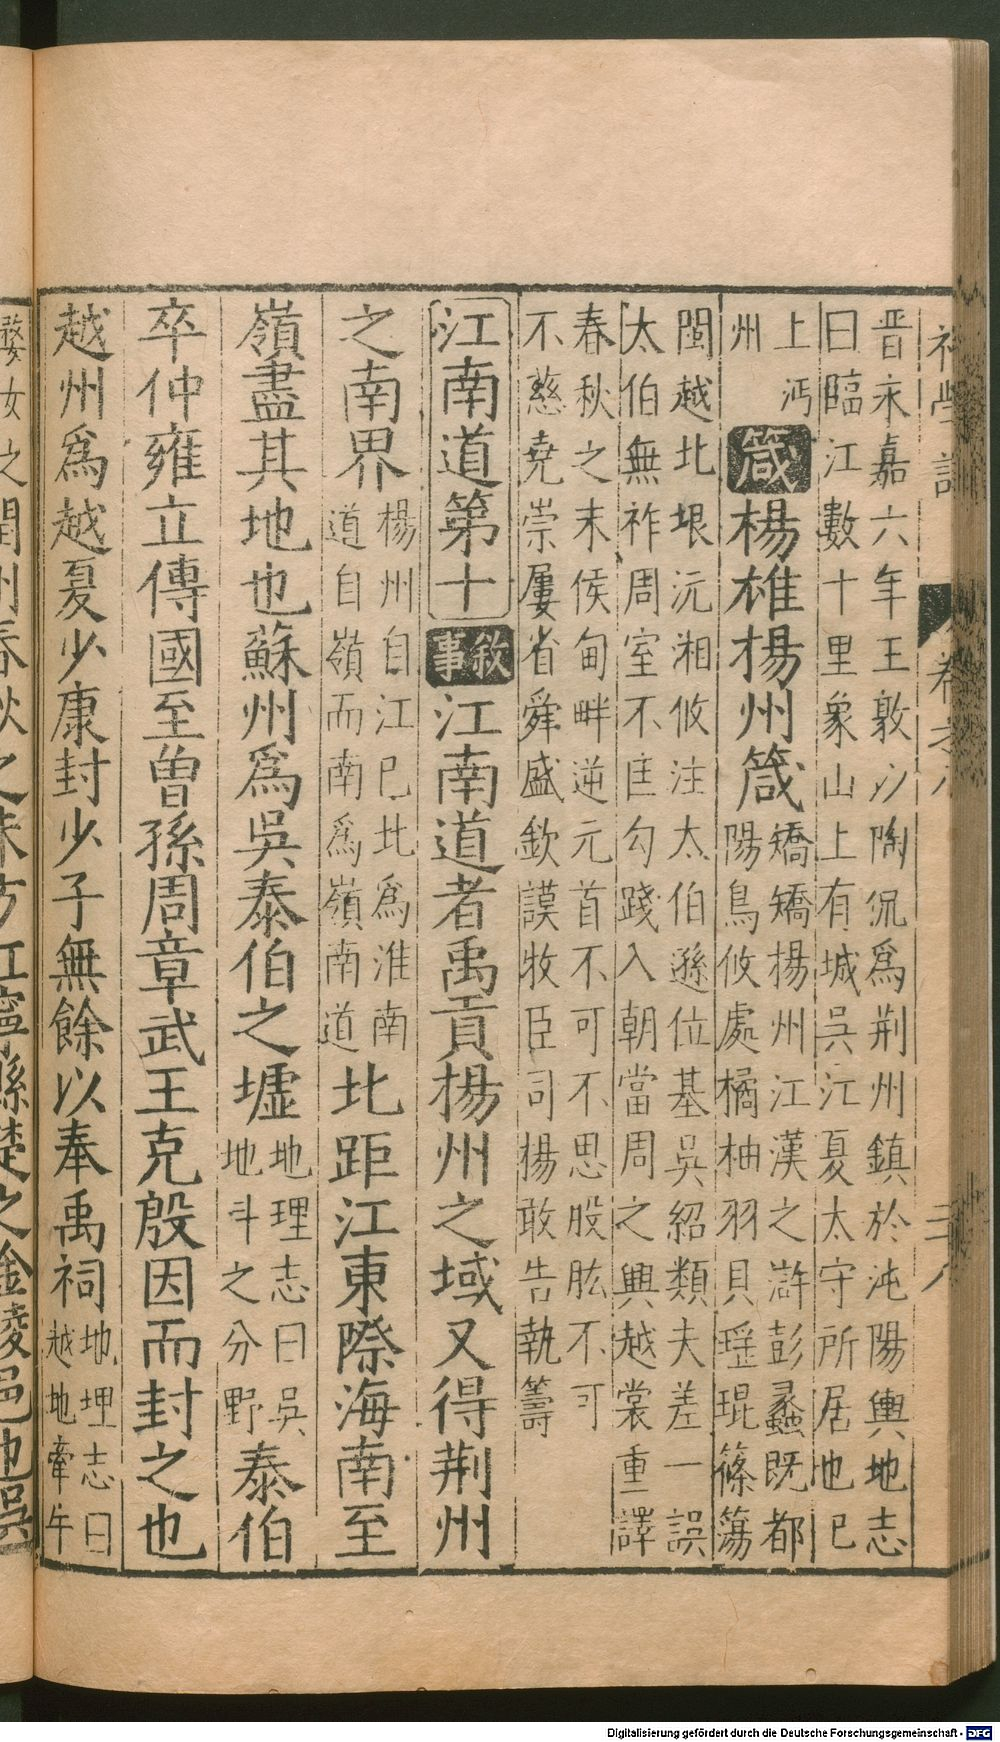 晋永嘉六年王敦以陶侃爲荆州鎮於沌陽輿地志
曰臨江數十里象山上有城吳江夏太守所居也已
上沔
州
箴
楊雄楊州箴
矯矯楊州江漢之滸彭蠡既都
陽鳥攸處橘柚羽貝瑶琨篠簜
閩越北垠沅湘攸注太伯遜位基吳紹類夫差一誤
太伯無祚周室不匡勾踐入朝當周之興越裳重譯
春秋之末侯甸畔逆元首不可不思股肱不可
不慈堯崇屢省舜盛欽謨牧臣司揚敢告執籌
江南道第十
敘事
江南道者禹貢楊州之域又得荆州
之南界
楊州自江已北爲淮南
道自嶺而南爲嶺南道
北距江東際海南至
嶺盡其地也蘇州爲吳泰伯之墟
地理志曰吳
地斗之分野
泰伯
卒仲雍立傳國至曾孫周章武王克殷因而封之也
越州爲越夏少康封少子無餘以奉禹祠
地理志曰
越地牽牛
婺女之
春秋之末
江寧縣楚之金陵邑也吳
Digitalisierung gefördert durch die Deutsche Forschungsgemeinschaft - DFG